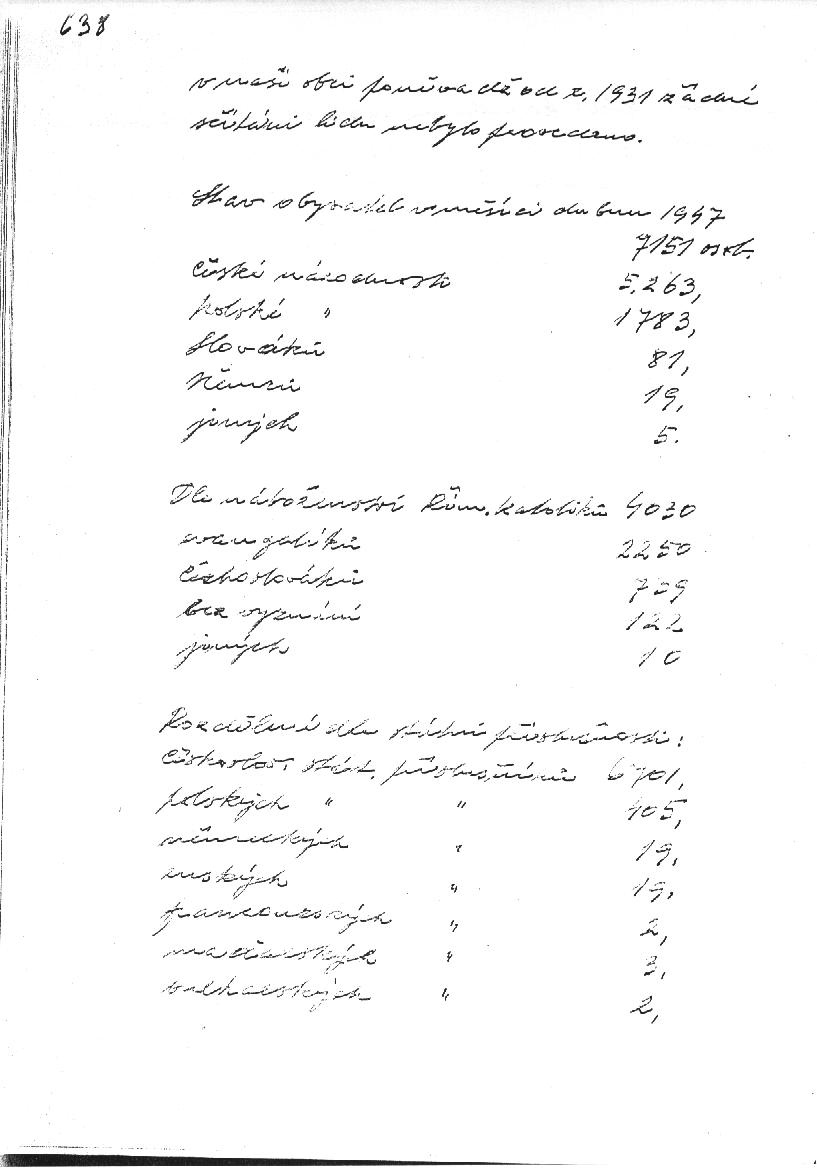 638
v naší obci poněvadž od r. 1931 žádné
sčítání lidu nebylo provedeno.
Stav obyvatel v měsíci dubnu 1947
7151 osob.
České národnosti 5.263,
polské " 1783,
Slováků 81,
Němců 19,
jiných 5.
Dle náboženství Řím. katolíků 4030
evangelíků 2250
Čechoslováků 739
bez vyznání 122
jiných 10
Rozdělení dle státní příslušnosti:
Českoslov. stát. příslušníků 6701,
polských " " 405,
německých " 19,
ruských " 19,
francouzských " 2,
maďarských " 3,
bulharských " 2,